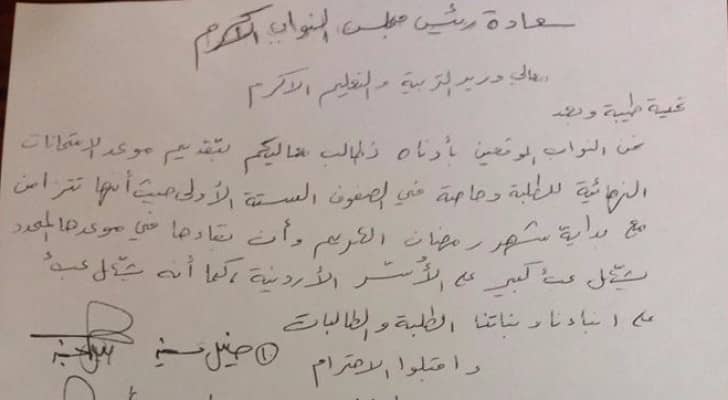 سعادة رئيس مجلس النواب الاكرم
معالي وزير التربية والتعليم الاكرم
تحية طيبة وبعد
نحن النواب الموقعين بأدناه نطالب معاليكم بتقديم موعد الامتحانات
النهائية للطلبة وخاصة في الصفوف الستة الأولى حيث أنها تتزامن
مع بداية شهر رمضان الكريم وأن بقاءها في موعدها المحدد
يشكل عبئ كبير على الأسر الأردنية، كما أنه يشكل عبئ
على ابناءنا وبناتنا الطلبة والطالبات
واقبلوا الاحترام
١